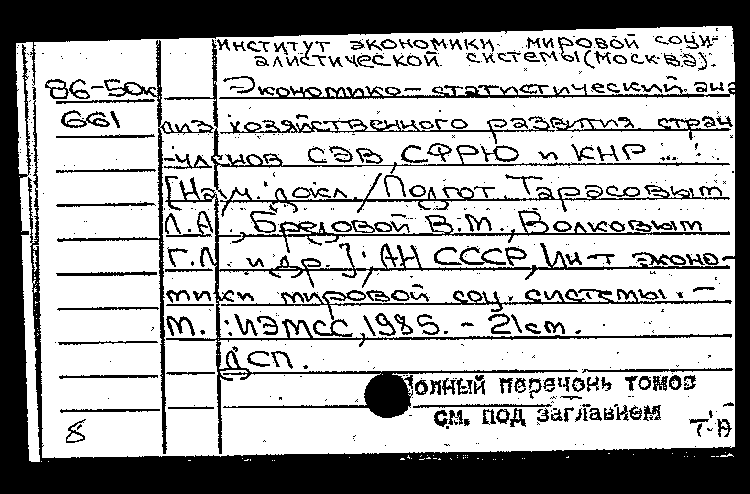 Институт экономики мировой соци-
алистической системы (Москва).
86-50к Экономико-статистический ана
661 лиз хозяйственного развития стран
-членов СЭВ, СФРЮ и КНР ... :
[Науч. докл. / Подгот. Тарасовым
Л.А., Бредовой В.М., Волковым
Г.Л. и др.]; АН СССР, Ин-т эконо-
мики мировой соц. системы. -
М. : ИЭМСС, 1985. - 21 см.
ДСП.
Полный перечень томов
см. под заглавием
8